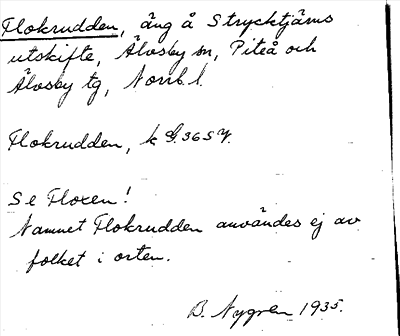 Flokrudden, äng å Strycktjärns
utskifte, Älvsby sn, Piteå och
Älvsby tg, Norrb. l.
Flokrudden, k G. 36 S Y.
Se Floxen!
Namnet Flokrudden användes ej av
folket i orten.
B. Nygren 1935.